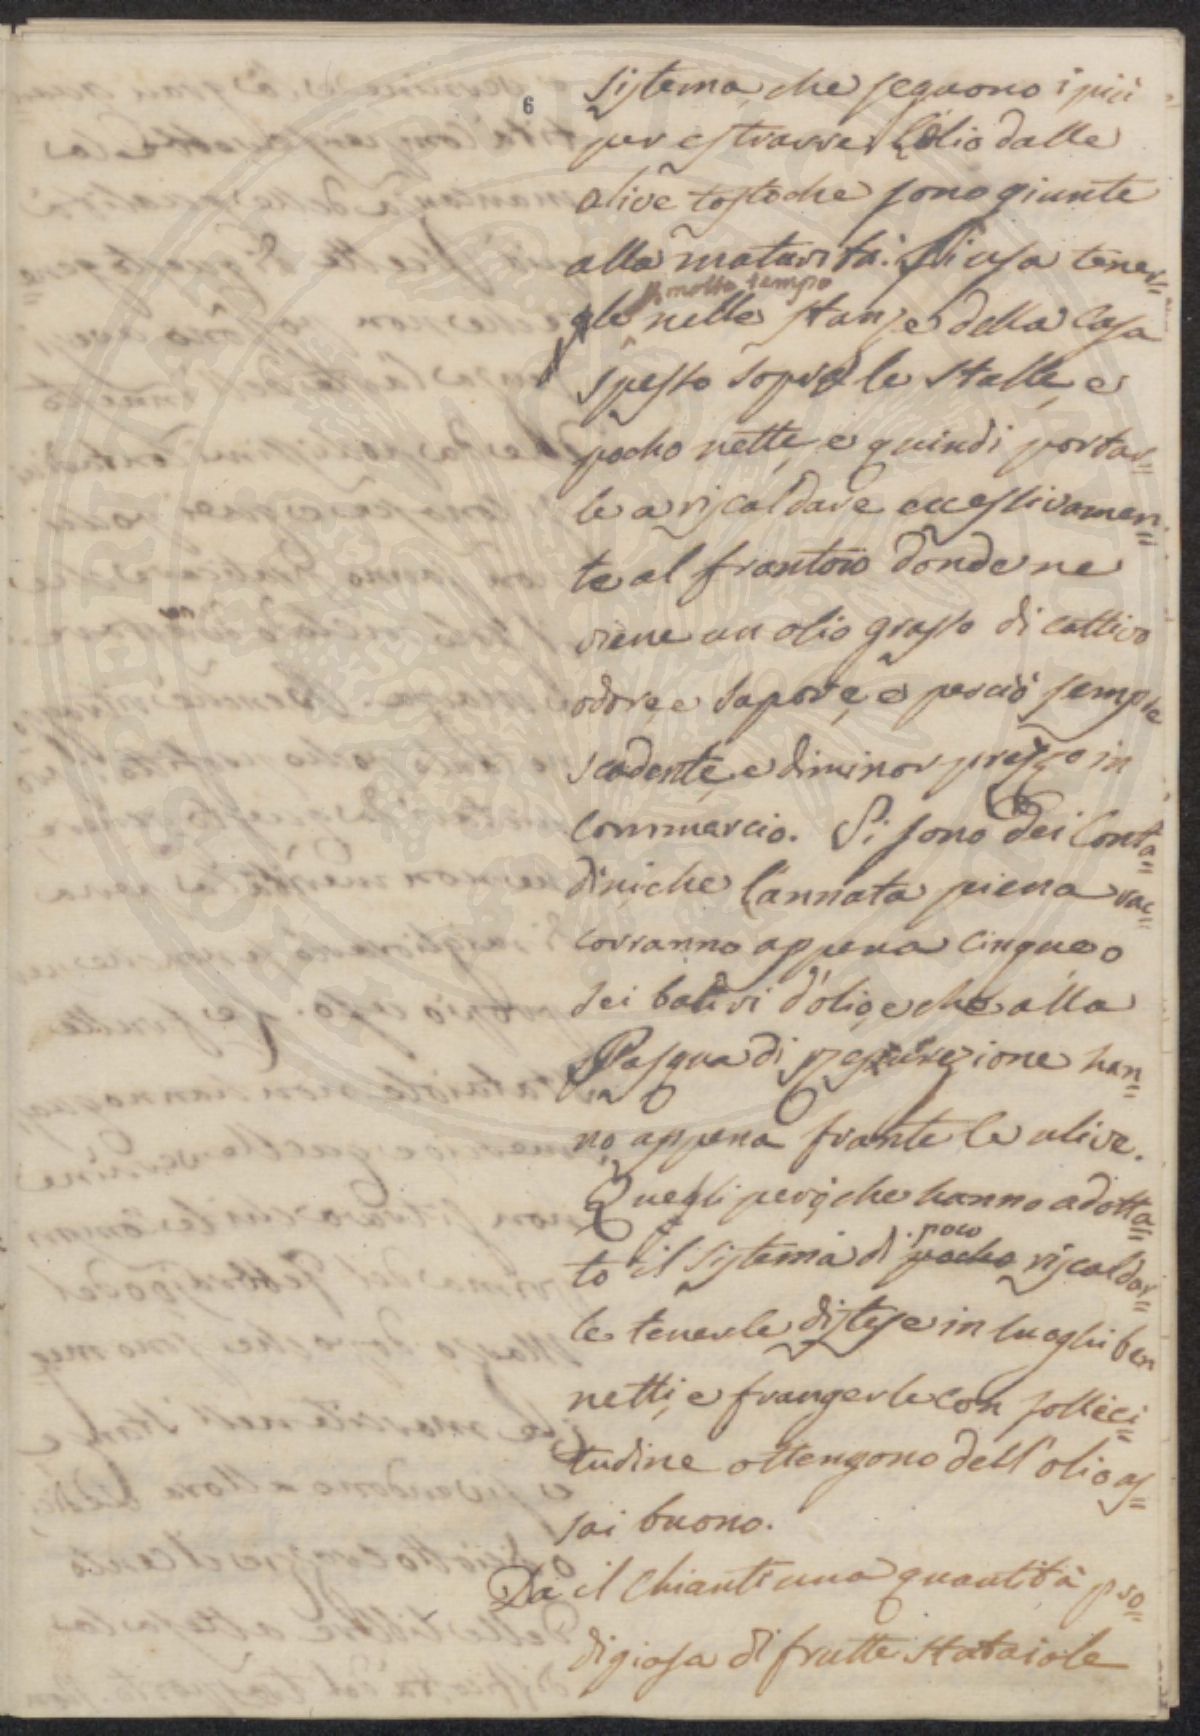 6
sistema, che seguono i più
per estrarre l'olio dalle
olive tostoche sono giunte
alla maturità. Si usa tener=
molto tempo
gle nelle stanze della casa
spesso sopra le stalle, e
pocho nette, e quindi portar=
le a riscaldare eccessivamen=
te al frantoio donde ne
viene un olio grasso di cattivo
odore, e sapore, e perciò sempre
scadente, e di minor prezzo in
commercio. Vi sono dei Conta=
dini che l'annata piena rac=
corranno appena cinque o
sei batiri d'olio, e che alla
Pasqua di resurezione han=
no appena frante le ulive.
Quegli però che hanno adotta=
poco
to il sistema di pocho riscaldar=
le tenerle distese in luoghi ben
netti, e frangerle con solleci=
tudine ottengono dell'olio as=
sai buono.
Dà il Chianti una quantità pro=
digiosa di frutte stataiole